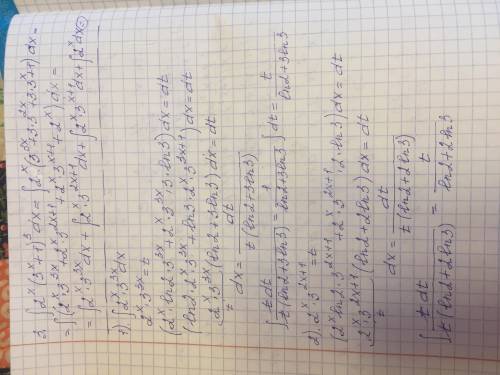 3. ∫2ˣ(3ˣ+1)³dx = ∫2ˣ(3³ˣ+3·3²ˣ+3·3ˣ+1)dx =
= ∫(2ˣ·3³ˣ+2ˣ·3²ˣ⁺¹+2ˣ·3ˣ⁺¹+2ˣ)dx =
= ∫2ˣ·3³ˣdx + ∫2ˣ·3²ˣ⁺¹dx + ∫2ˣ·3ˣ⁺¹dx + ∫2ˣdx =
1). ∫2ˣ·3³ˣdx
2ˣ·3³ˣ = t
(2ˣ·ln2·3³ˣ+2ˣ·3³ˣ·3·ln3)dx = dt
(ln2·2ˣ·3³ˣ+ln3·2ˣ·3³ˣ⁺¹)dx = dt
2ˣ·3³ˣ(ln2+3ln3)dx = dt
t
dx = dt/(t(ln2+3ln3))
∫ t dt/(t(ln2+3ln3)) = 1/(ln2+3ln3) ∫dt = t/(ln2+3ln3)
2). 2ˣ·3²ˣ⁺¹ = t
(2ˣln2·3²ˣ⁺¹+2ˣ·3²ˣ⁺¹·2·ln3)dx = dt
2ˣ·3²ˣ⁺¹(ln2+2ln3)dx = dt
t
dx = dt/(t(ln2+2ln3))
∫ t dt/(t(ln2+2ln3)) = t/(ln2+2ln3)